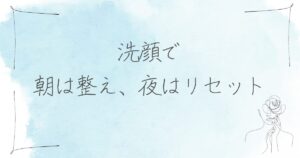 洗顔で
朝は整え、夜はリセット